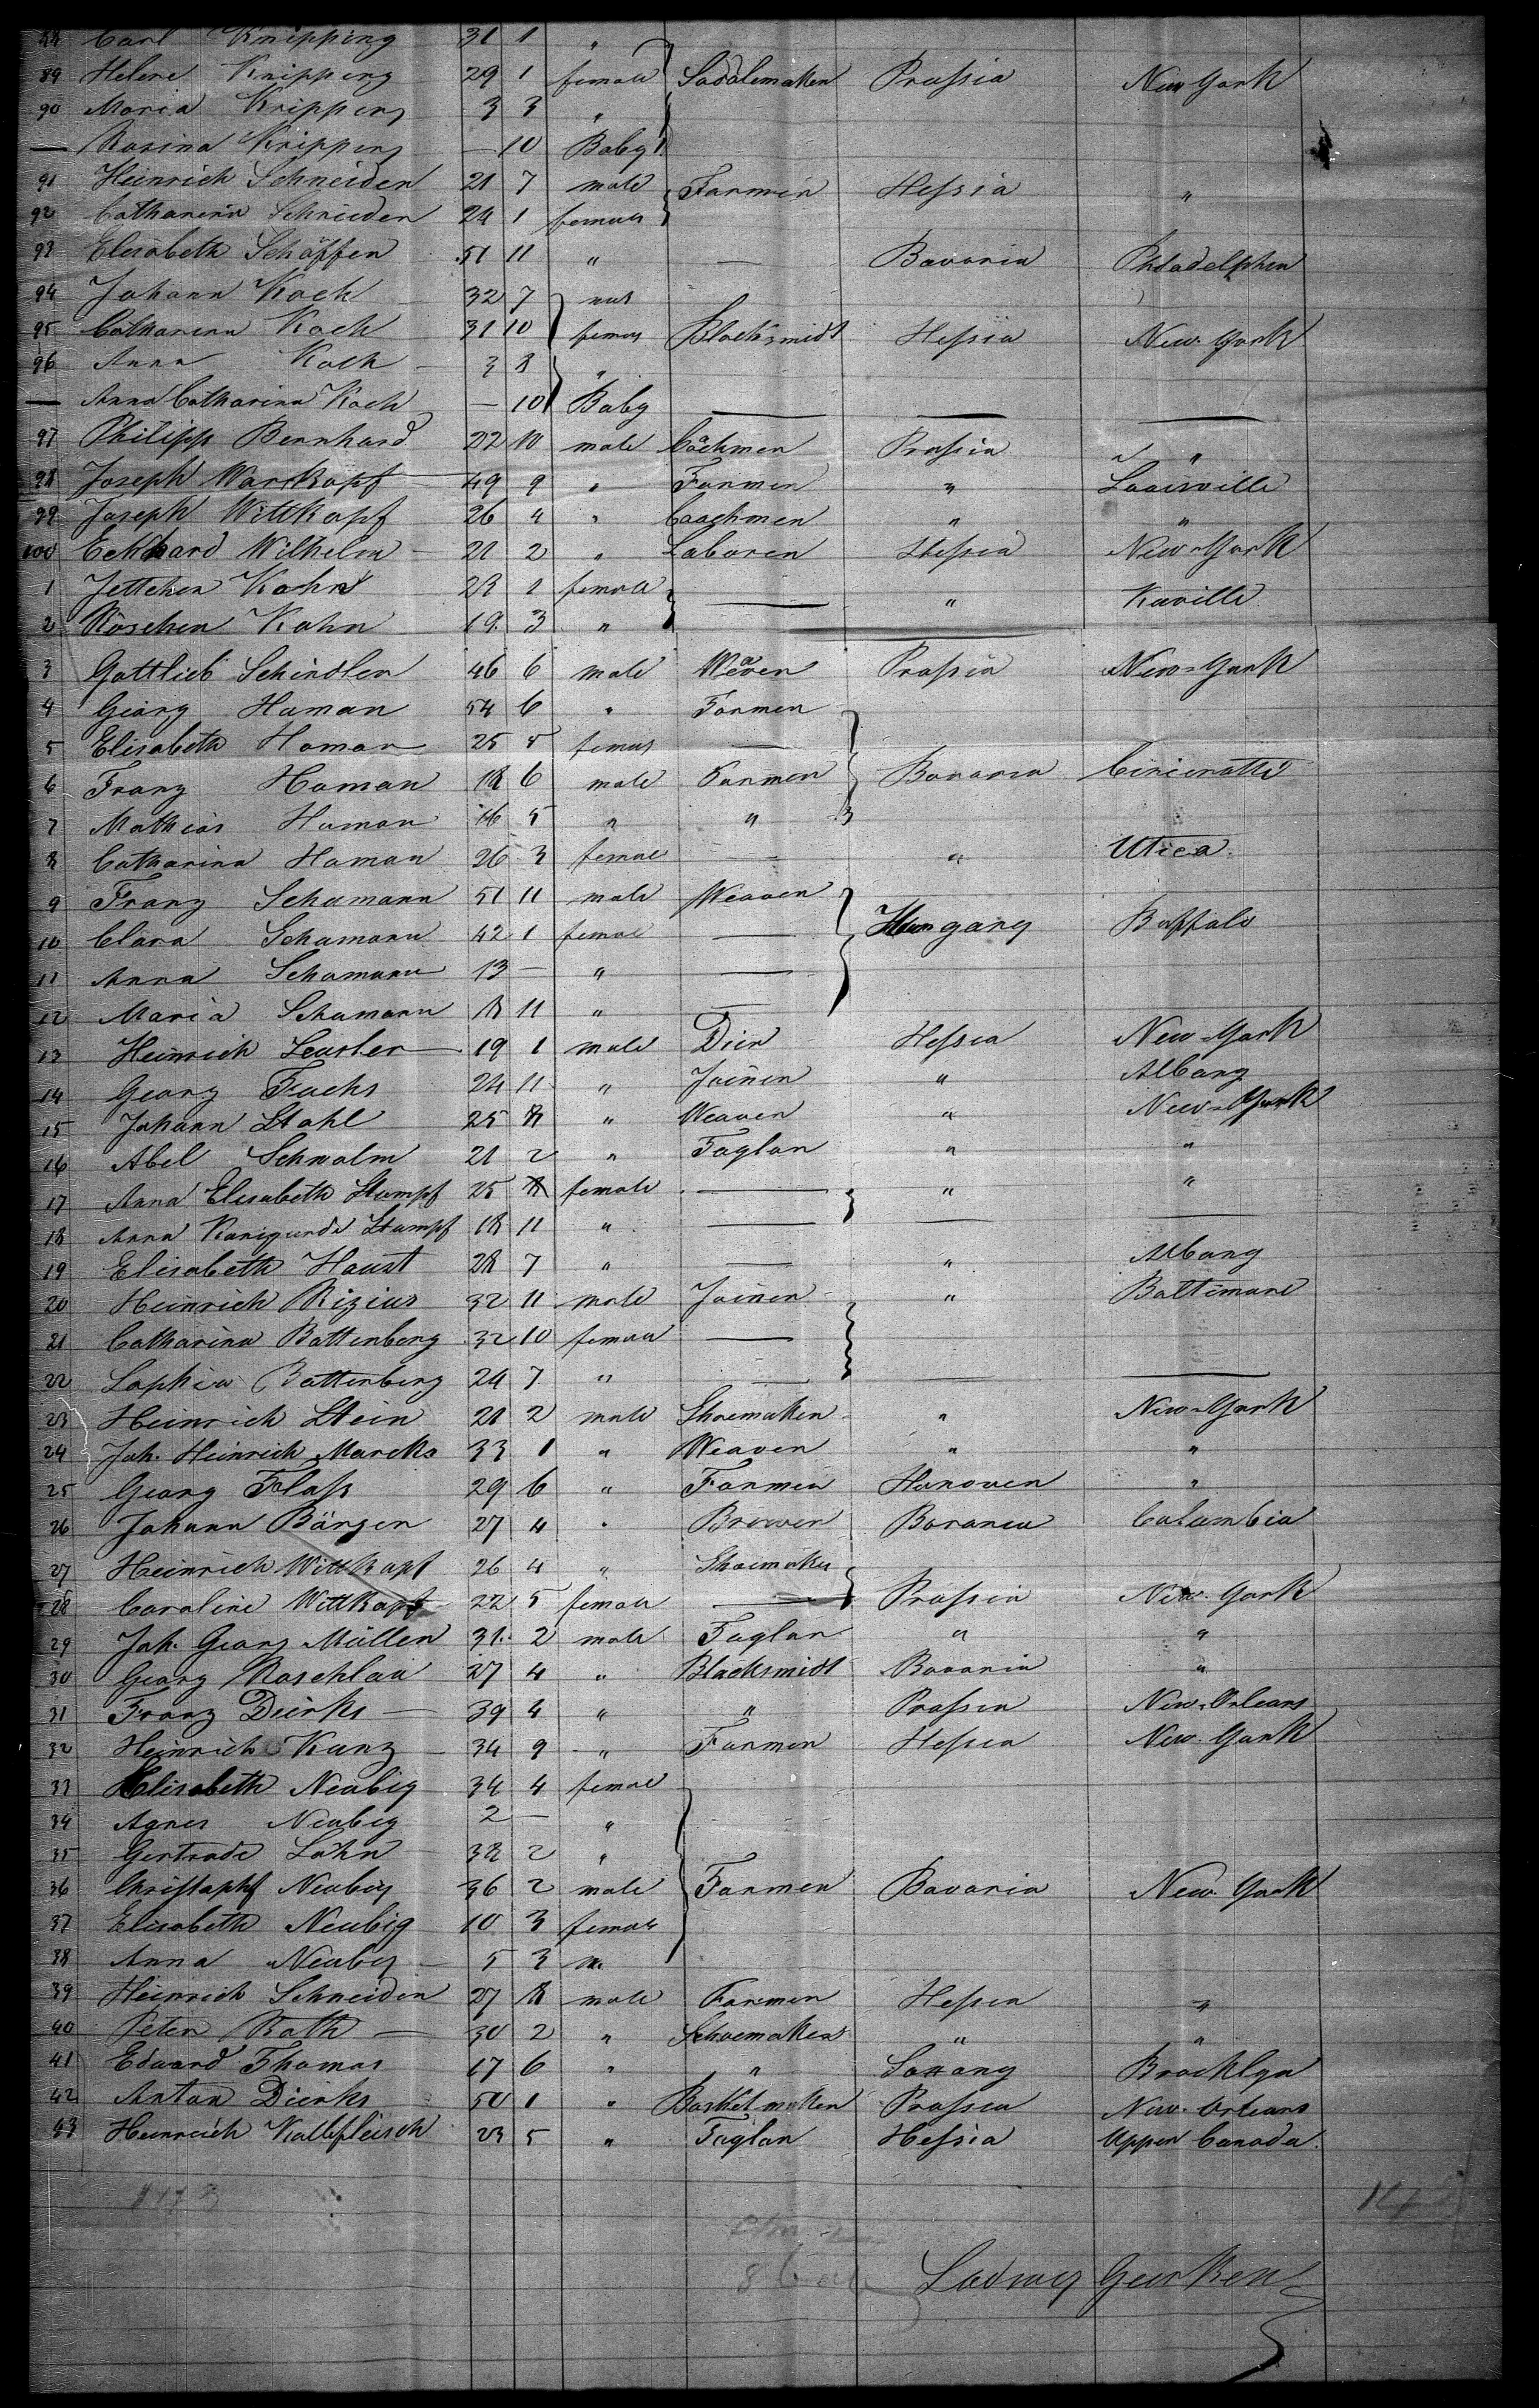 88 Carl Knipping 31 1 "
89 Helene Knipping 29 1 female Sadalemaken Prussia New York
90 Maria Knipping 3 3 "
— Rosina Knipping — 10 Baby
91 Heinrich Schneider 21 7 male Farmer Hessia "
92 Catharina Schneider 24 1 female
93 Elisabeth Schäffer 51 11 " — Bavaria Philadelphia
94 Johann Koch 32 7 male
95 Catharina Koch 31 10 female Blacksmidt Hessia New York
96 Anna Koch 3 8 "
— Anna Catharina Koch — 10 Baby — — —
97 Philipp Bernhard 22 10 male Cöchmen Prussia "
98 Joseph Warkopf 49 9 " Farmer " Louisville
99 Joseph Wittkopf 26 4 " Coachmen " "
100 Eckhard Wilhelm 21 2 " Laborer Hessia New-York
1 Jettchen Kahn 23 1 female — " Kaville
2 Röschen Kahn 19 3 "
3 Gottlieb Schindler 46 6 male Weaver Prussia New-York
4 Georg Haman 54 6 " Farmer
5 Elisabeth Haman 25 5 female —
6 Franz Haman 18 6 male Farmer Bavaria Cincinatti
7 Mathias Haman 16 5 " "
8 Catharina Haman 26 3 female — " Utica
9 Franz Schumann 51 11 male Weaver
10 Clara Schumann 42 1 female — Hungary Buffalo
11 Anna Schumann 13 — " —
12 Maria Schumann 8 11 " —
13 Heinrich Leuster 19 1 male Dier Hessia New-York
14 Georg Fuchs 24 11 " Joiner " Albany
15 Johann Stahl 25 8 " Weaver " New-York
16 Abel Schwalm 21 2 " Taylor " "
17 Anna Elisabeth Stumpf 25 8 female — " "
18 Anna Kunigunde Stumpf 18 11 " — — —
19 Elisabeth Haust 28 7 " — " Albany
20 Heinrich Rizius 32 11 male Joiner " Baltimore
21 Catharina Battenberg 32 10 female —
22 Sophia Battenberg 24 7 " — — —
23 Heinrich Stein 21 2 male Shoemaker " New-York
24 Joh. Heinrich Marcks 33 1 " Weaver " "
25 Georg Flaß 29 6 " Farmer Hanover "
26 Johann Bärger 27 4 " Brewer Bavaria Columbia
27 Heinrich Wittkopf 26 4 " Shoemaker
28 Caroline Wittkopf 22 5 female — Prussia New-York
29 Joh. Georg Müller 31 2 male Taylor " "
30 Georg Roschlau 27 4 " Blacksmidt Bavaria "
31 Franz Dierks — 39 4 " " Prussia New-Orleans
32 Heinrich Kunz 34 9 " Farmer Hessia New-York
33 Elisabeth Neubig 34 4 female
34 Agnes Neubig 2 — "
35 Gertrude Löhn 38 2 "
36 Christoph Neubig 36 2 male Farmer Bavaria New-York
37 Elisabeth Neubig 10 3 female
38 Anna Neubig 5 3 "
39 Heinrich Schneider 27 8 male Farmer Hessia "
40 Peter Rath — 30 2 " Schoemaker " "
41 Eduard Thomas 17 6 " " Saxony Brocklyn
42 Anton Dierks 50 1 " Basketmaker Prussia New-Orleans
43 Heinrich Kalbfleisch 23 5 " Taylor Hessia Upper Canada
Ludwig Gerken